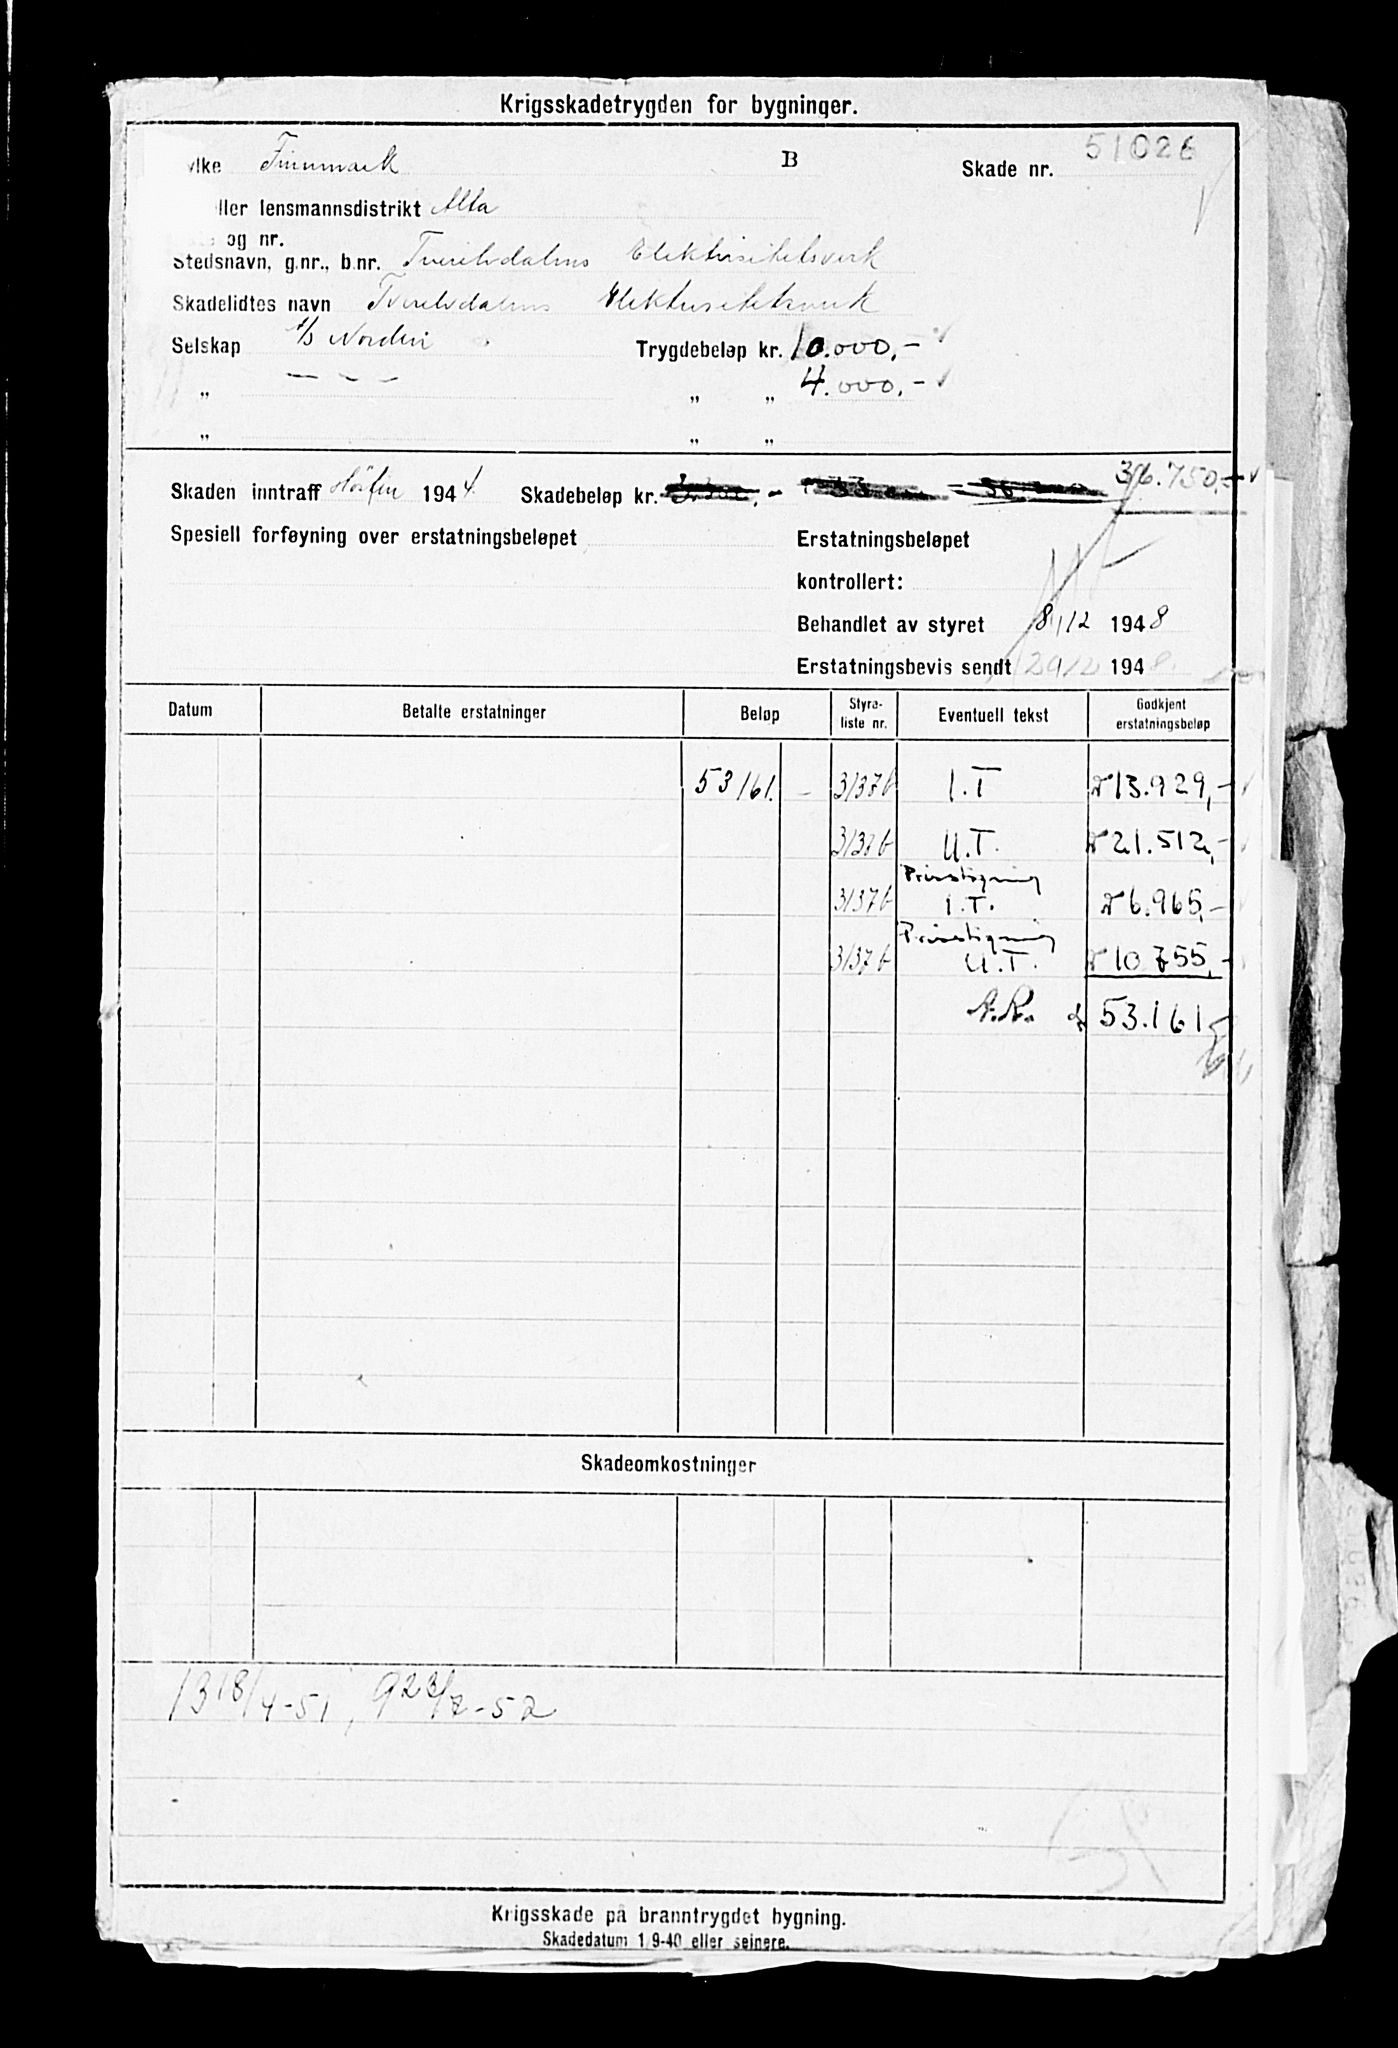 Krigsskadetrygden for bygninger.
ylke Finnmark B Skade nr. 51026
ller lensmannsdistrikt Alta
og nr.
Stedsnavn, g.nr., b.nr. Tverelvdalens Elektrisitetsverk
Skadelidtes navn Tverelvdalens Elektrisitetsverk
Selskap A/S Norden Trygdebeløp kr. 10.000,-
„ — — — „ „ 4.000,-
„ „ „
Skaden inntraff Høsten 1944 Skadebeløp kr. 36.750,-
Spesiell forføyning over erstatningsbeløpet Erstatningsbeløpet
kontrollert:
Behandlet av styret 8/12 1948
Erstatningsbevis sendt 29/12 1948
Datum Betalte erstatninger Beløp Styre-liste nr. Eventuell tekst Godkjent erstatningsbeløp
53161.- 3137b I.T 13.929,-
3137b U.T. 21.512,-
3137b Prisstigning I.T. 6.965,-
3137b Prisstigning U.T. 10.755,-
A.R. 53.161,-
Skadeomkostninger
13 18/4-51, 9 23/7-52
Krigsskade på branntrygdet bygning.
Skadedatum 1/9-40 eller seinere.